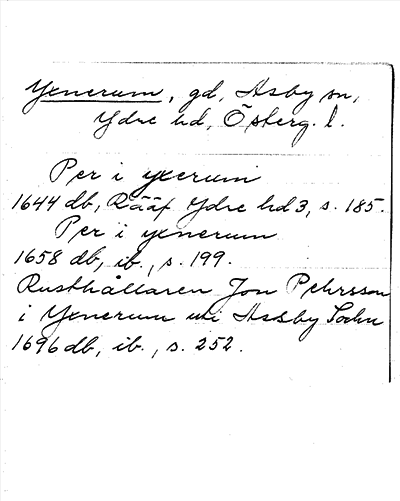 Yxnerum, gd, Asby sn,
Ydre hd, Österg. l.
Per i yxerum
1644 db, Rääf Ydre hd 3, s. 185.
Per i yxnerum
1658 db, ib., s. 199.
Rusthållaren Jon Pehrsson
i Yxnerum uti Assby Sochn
1696 db, ib., s. 252.